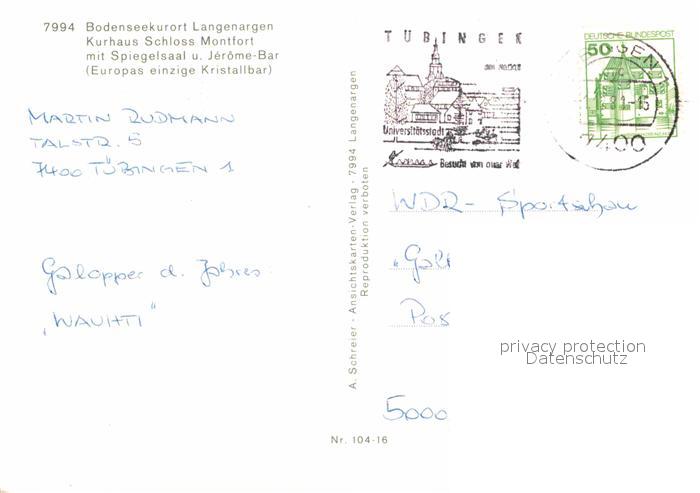 7994 Bodenseekurort Langenargen
Kurhaus Schloss Montfort
mit Spiegelsaal u. Jérôme-Bar
(Europas einzige Kristallbar)
MARTIN RUDMANN
TALSTR. 5
7400 TÜBINGEN 1
Galopper d. Jahres:
„WAUHTI"
A. Schreier · Ansichtskarten-Verlag · 7994 Langenargen
Reproduktion verboten
TÜBINGEN
am Neckar
Universitätsstadt
Besucht von aller Welt
DEUTSCHE BUNDESPOST
50
7400
WDR - Sportschau
privacy protection
Datenschutz
5000
Nr. 104-16